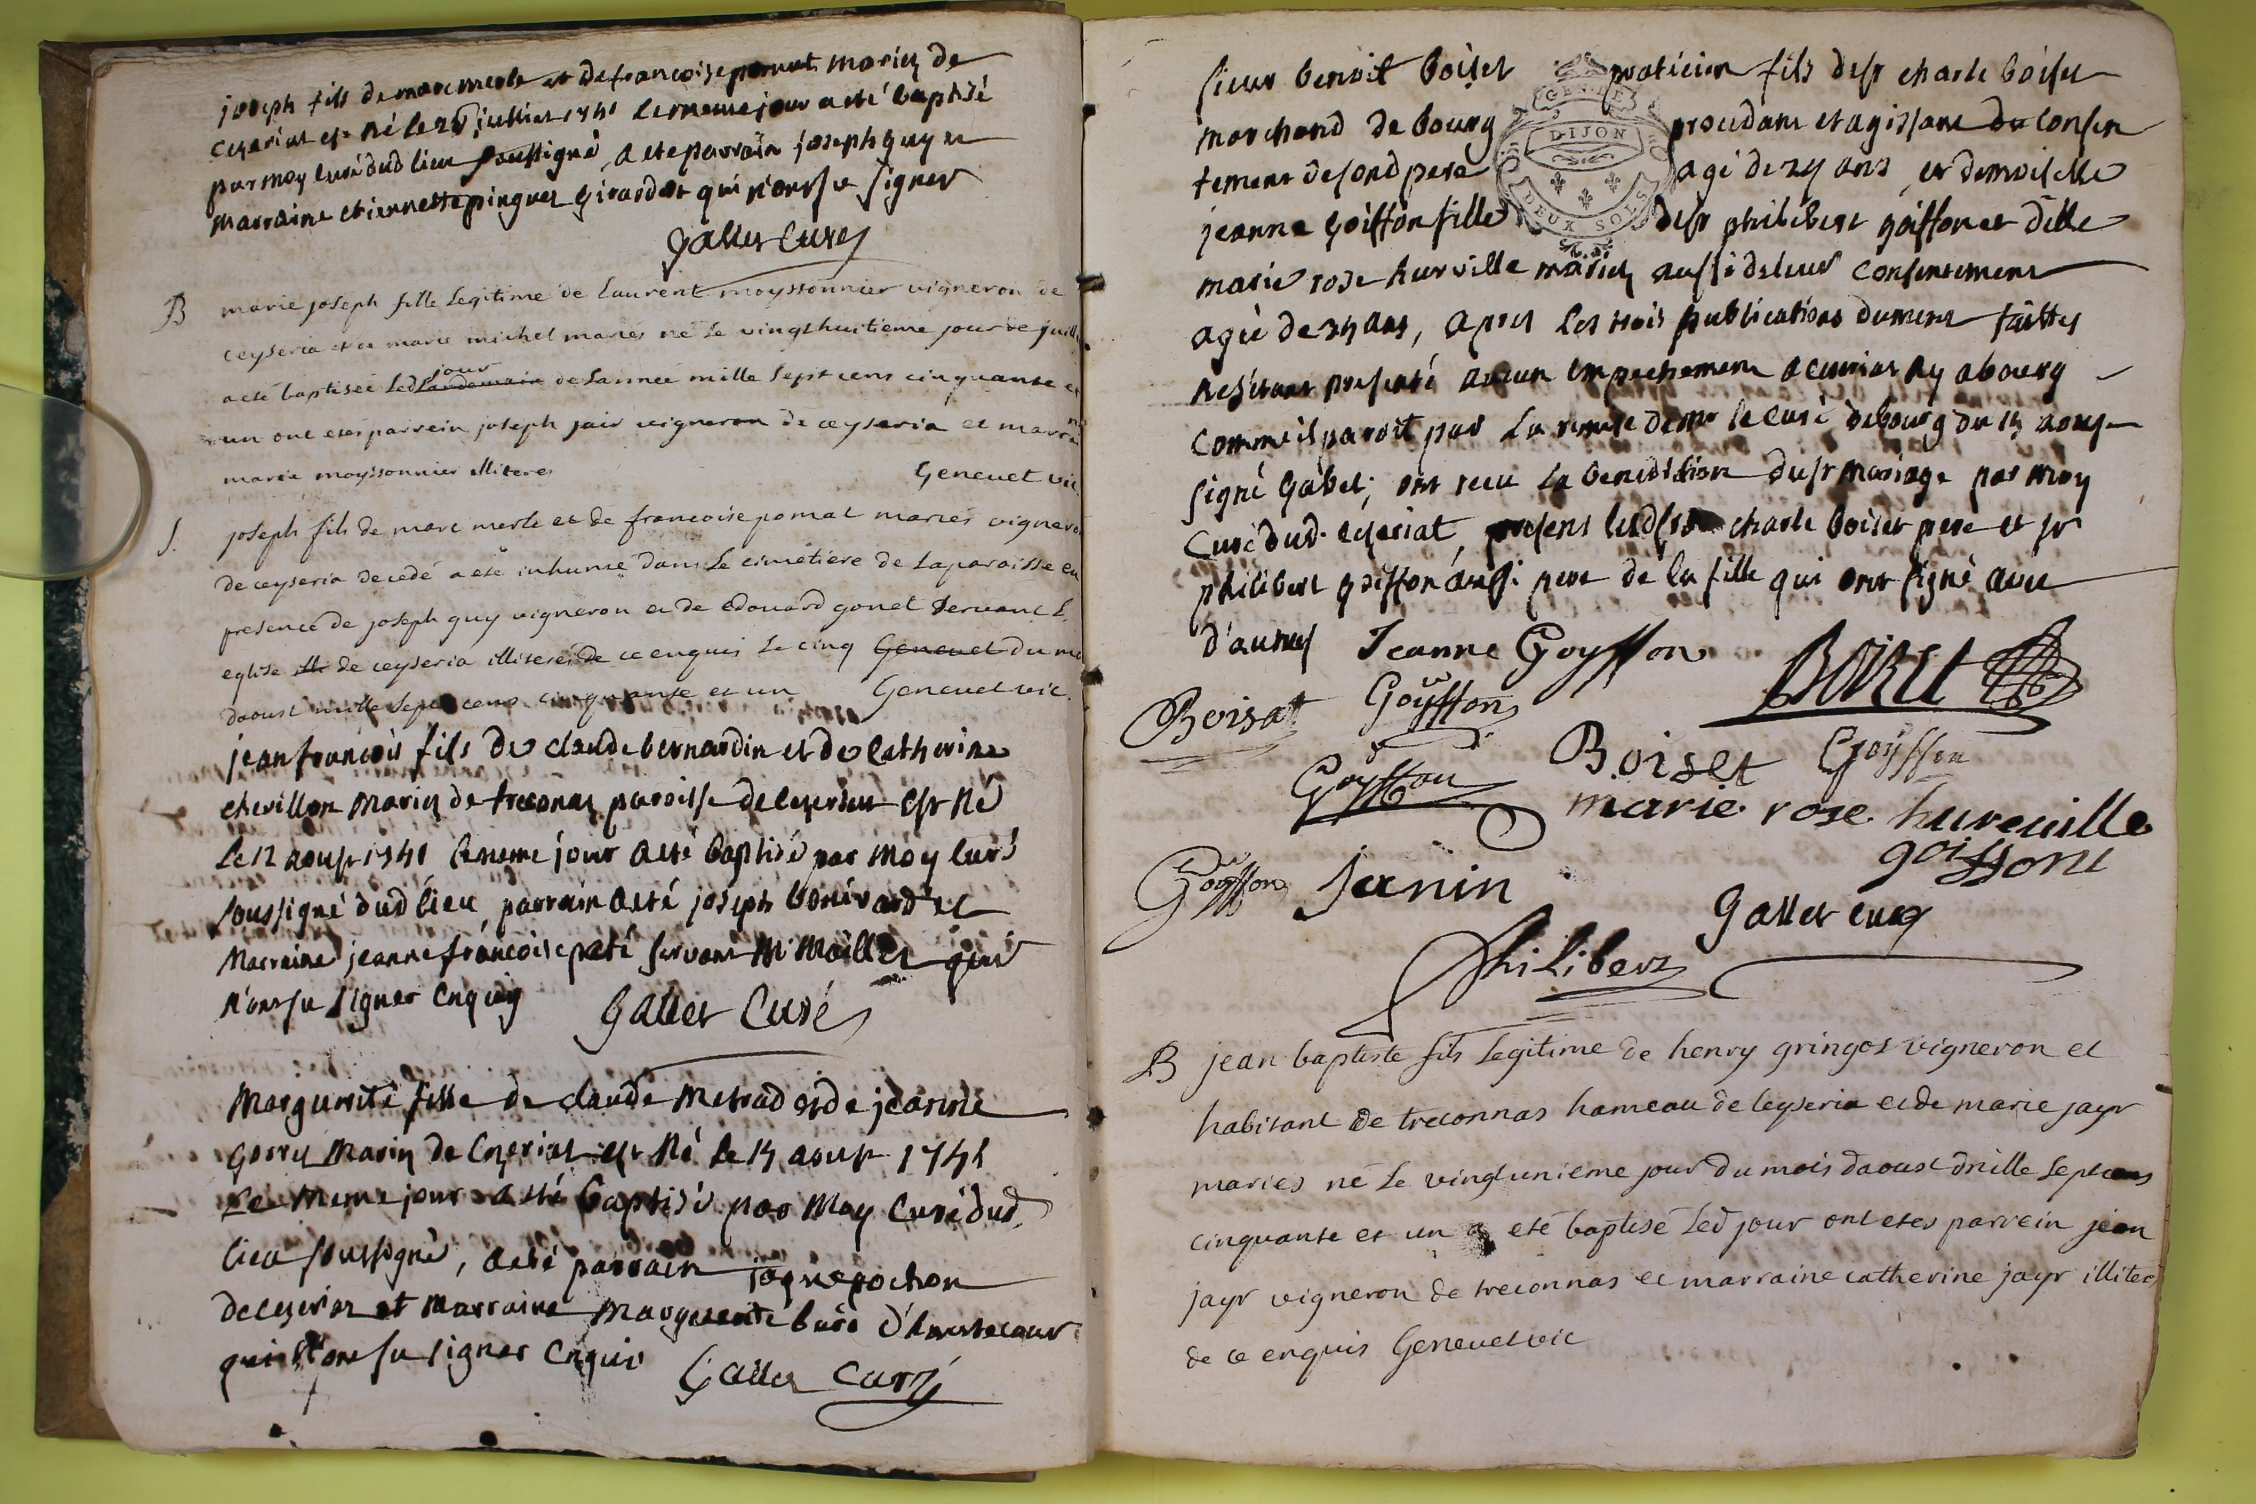 joseph fils de marc merle et de francoise pomat mariez de
ceseriat est né le 28 juilliet 1751 le meme jour a eté baptisé
par moy curé dud lieu soussigné, a ete parrain joseph guy et
marraine etiennette pinguet girardot qui n'ont su signer
Gallet Curé
B marie joseph fille legitime de laurent moyssonnier vigneron de
ceyseria et de marie michel maries né le vingt huitieme jour de juill
a eté baptisée led landemain jour de lannée mille sept cens cinquante et
un ont etes parrein joseph jair vigneron de ceyseria et marrai
marie moyssonnier illiteres Genevet vic
S. joseph fils de marc merle et de francoise pomat maries vignero
de ceyseria decedé a eté inhumé dans le cimétiere de la paroisse en
presence de joseph guy vigneron et de edouard gonet servant l
eglise de ceyseria illiteres de ce enquis le cinq Genevet du mo
daoust mille sept cens cinquante et un Genevet vic
jean francois fils de claude bernardin et de catherine
chevillon mariez de treconas paroisse de ceseriat est né
le 12 aoust 1751 le meme jour a eté baptisé par moy curé
soussigné dud lieu, parrain a eté joseph bonivard et
marraine jeanne francoise servant Mr Maillet qui
n'ont su signer enquis Gallet Curé
Marguerite fille de claude metrad et de jeanne
gorret mariez de ceseriat est né le 15 aoust 1751
le meme jour a eté baptisé par moy curé dud
lieu soussigné, a eté parrain jaque pochon
de ceseriat et marraine marguerite buiré d'hautecour
qui n'ont su signer enquis Gallet Curé
sieur benoit boiset praticien fils de sr charle boiset
marchand de bourg procedant et agissant du consen
tement de sond pere agé de 25 ans, et demoiselle
GEN. DE
DIJON
DEUX SOLS
jeanne goiffon fille de sr philibert goiffon et delle
marie rose hurville mariez aussi de leur consentement
agée de 24 ans, apres les trois publications dument faittes
ne s'etant presenté aucun empechement a ceseriat ny a bourg
comme il paroit par la remise de mr le curé de bourg du 15 aoust
signé Gabet, ont receu la benediction du st mariage par moy
curé dud. ceseriat, presens lesd srs charle boiset pere et sr
philibert goiffon aussi pere de la fille qui ont signé avec
d'autres Jeanne Goyffon Boiset
Boisat Goyffon
Goyffon Boiset Goyffon
marie rose hureuille
goiffont
Goyffon Janin
Gallet curé
Philibert
B jean baptiste fils legitime de henry gringos vigneron et
habitant de treconnas hameau de ceyseria et de marie jayr
maries né le vingt unieme jour du mois daoust mille sept cens
cinquante et un a eté baptisé led jour ont etes parrein jean
jayr vigneron de treconnas et marraine catherine jayr illiteres
de ce enquis Genevet vic